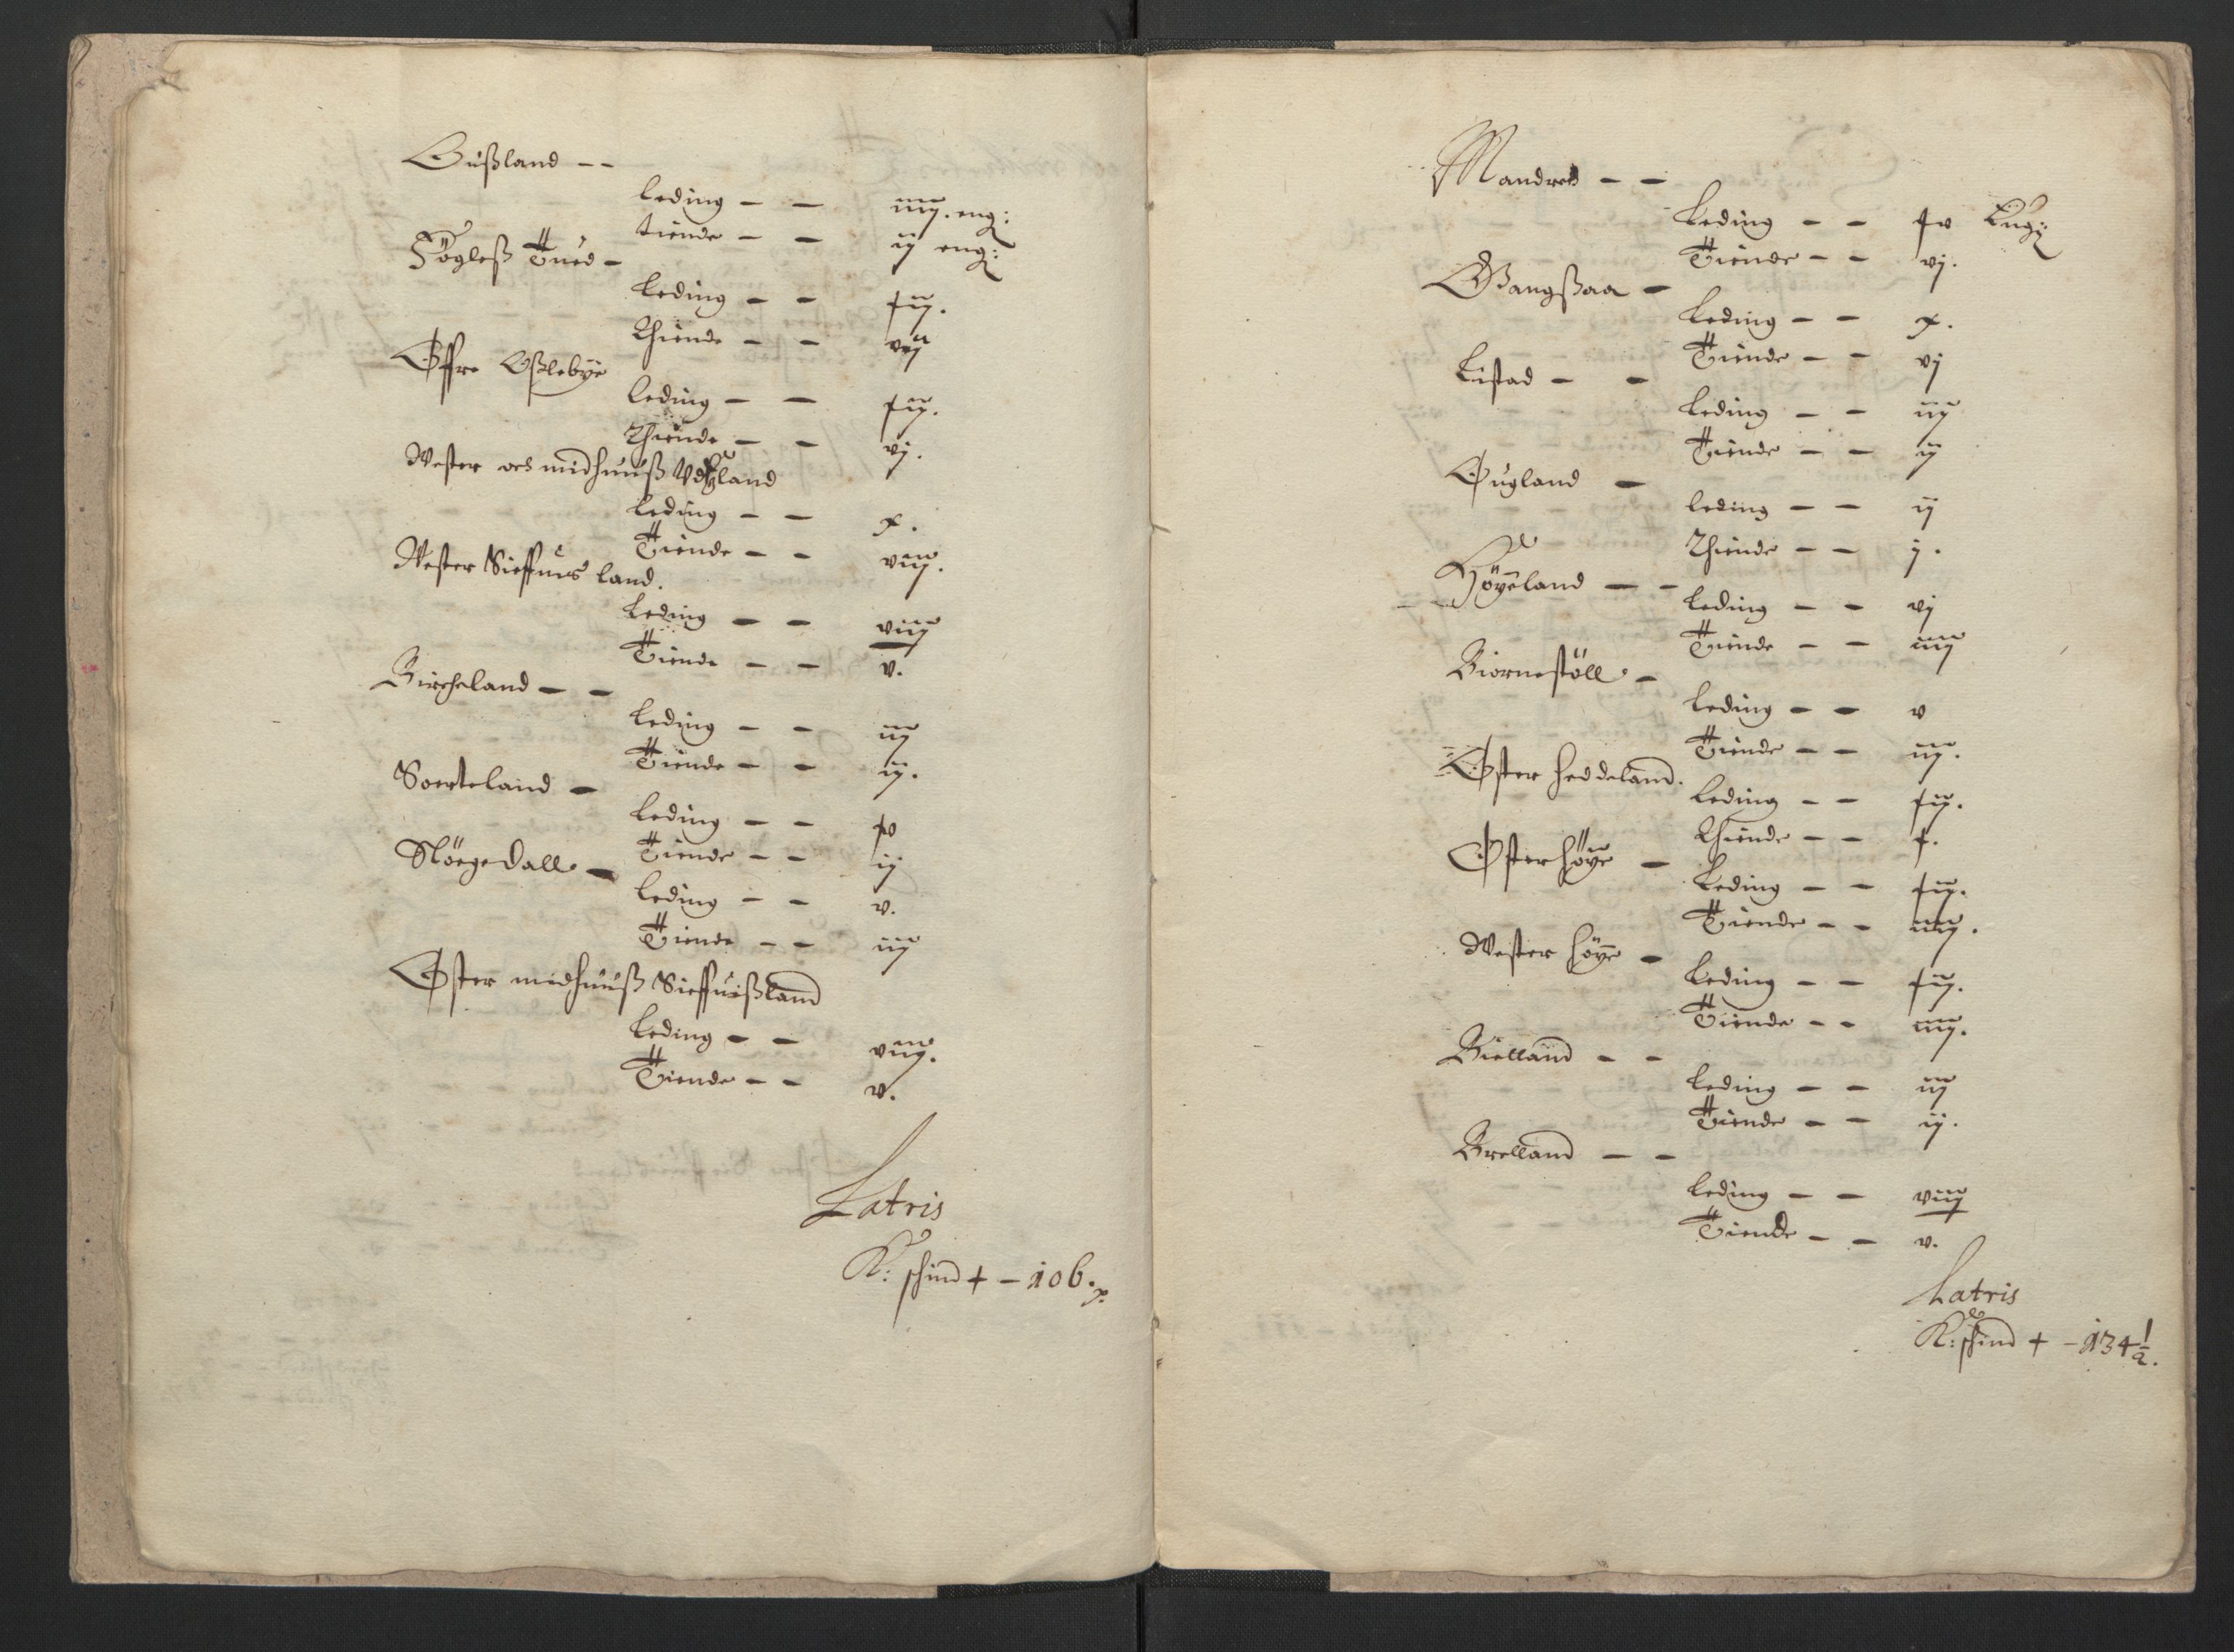 Gußland - -
leding - - iiij. eng:
tiende - - ij eng:
Högleß Tued -
leding - - xij.
Thiende - - vij
Øffre Oßlebÿe
leding - - xij.
Thiende - - vj.
Wester och midhuuß land
leding - - x.
Tiende - - viij.
Wester Sieffues land.
leding - - viij
Tiende - - v.
Bircheland - -
leding - - iij
Tiende - - ij.
Soerteland -
leding - -
Tiende - - ij
Nöegedall -
leding - - v.
Tiende - - iij
Øster midhuuß Sieffuißland
leding - - viij.
Tiende - - v.
Latris
K: schind + - 106.
Mandrod - -
Leding - - xv Eng:
Tiende - - vj.
Wangßaa -
Leding - - x.
Tiende - - vj
Listad - -
leding - - iij
Tiende - - ij
Øugland -
leding - - ij
Thiende - - j.
Höÿeland - -
leding - - vj
Tiende - - iiij
Biornestöll -
leding - - v
Tiende - - iij.
Øster heddeland.
leding - - xij.
Thiende - - x.
Øster höÿe -
Leding - - xij.
Tiende - - iiij.
Wester höÿe -
Leding - - xij.
Tiende - - iiij.
Bielland - -
leding - - iij
Tiende - - ij.
Brelland - -
leding - - viij
Tiende - - v.
Latris
K: schind + - 134 1/2.